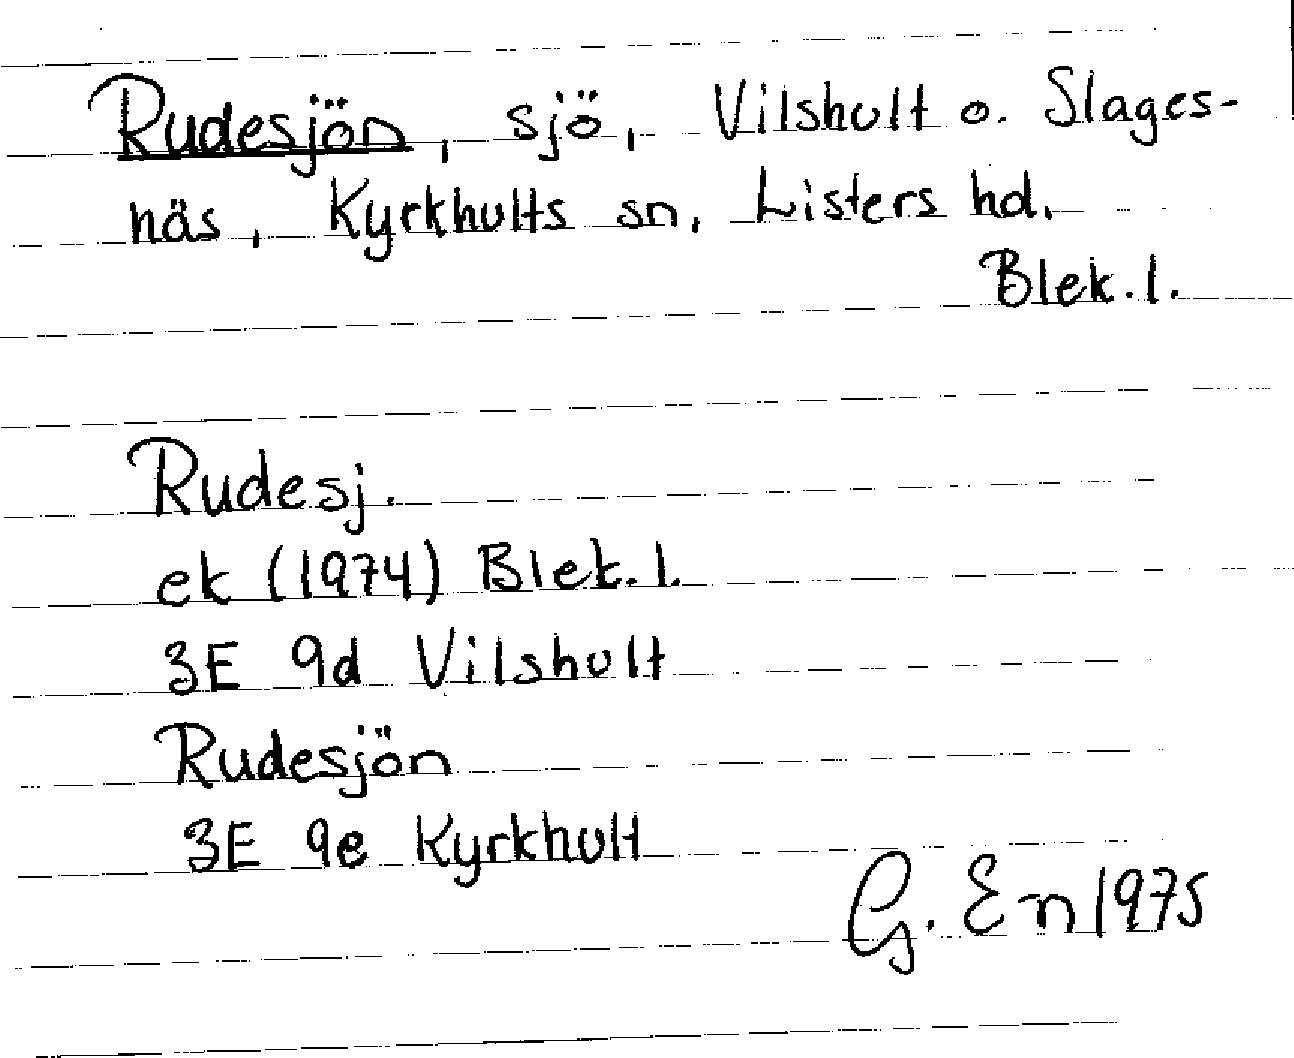 Rudesjön, sjö, Vilshult o. Slages-
näs, Kyrkhults sn, Listers hd.
Blek. l.
Rudesj.
ek (1974) Blek. l.
3E 9d Vilshult
Rudesjön
3E 9e Kyrkhult
G. En 1975